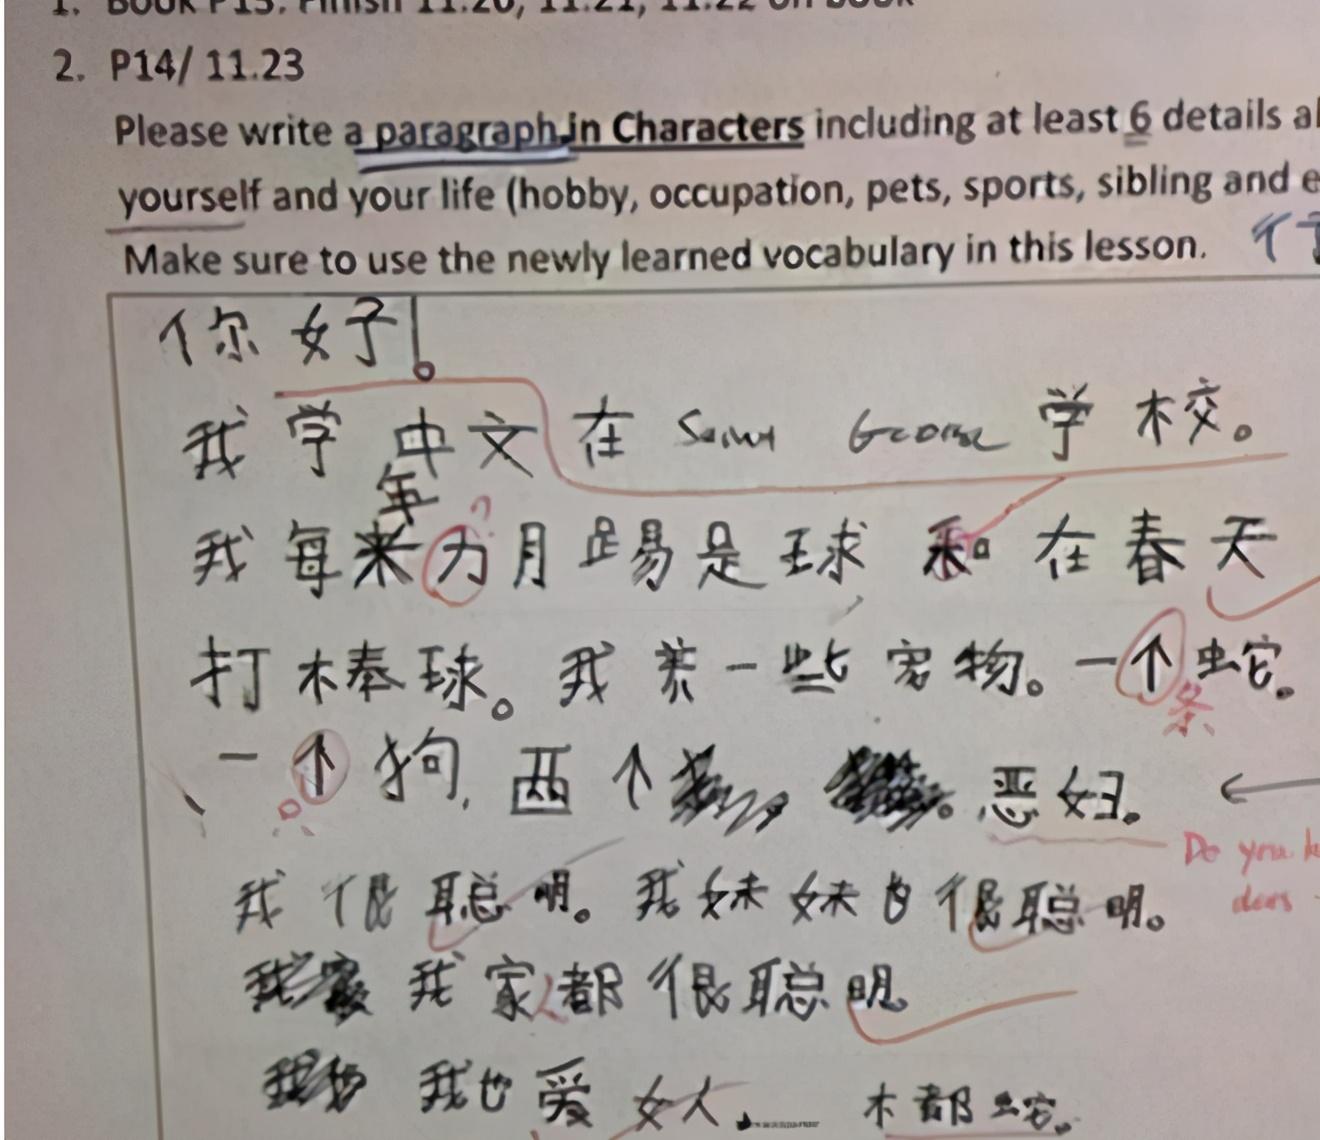 1. BOOK P13. Finish 11.20, 11.21, 11.22 on book
2. P14/ 11.23
Please write a paragraph in Characters including at least 6 details
yourself and your life (hobby, occupation, pets, sports, sibling and
Make sure to use the newly learned vocabulary in this lesson.
你好!。
我学中文在 Saint George 学校。
年
我每来力月踢是球和在春天
打棒球。我养一些宠物。一个蛇。
条
一个狗, 两个 恶妇。
Do you
does
我很聪明。我妹妹也很聪明。
我家人都很聪明
我也爱女人